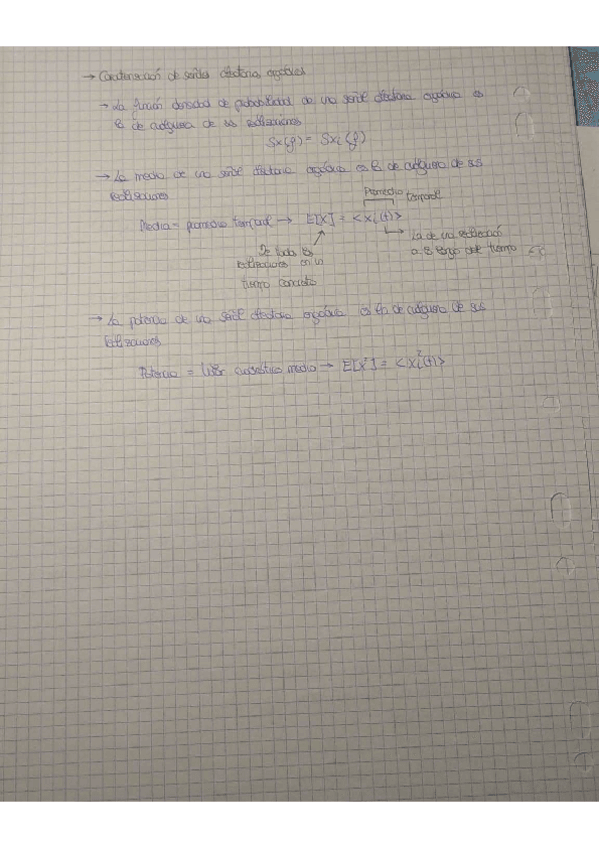 → Caracterización de señales aleatorias ergódicas
→ La función densidad de probabilidad de una señal aleatoria ergódica es
la de cualquiera de sus realizaciones
Sx(f) = Sxi(f)
→ La media de una señal aleatoria ergódica es la de cualquiera de sus
realizaciones
Promedio temporal
Media = promedio temporal → E[X] = <xi(t)>
De todas las
realizaciones en un
tiempo concreto
La de una realización
a lo largo del tiempo
→ La potencia de una señal aleatoria ergódica es la de cualquiera de sus
realizaciones
Potencia = Valor cuadrático medio → E[X²] = <xi²(t)>